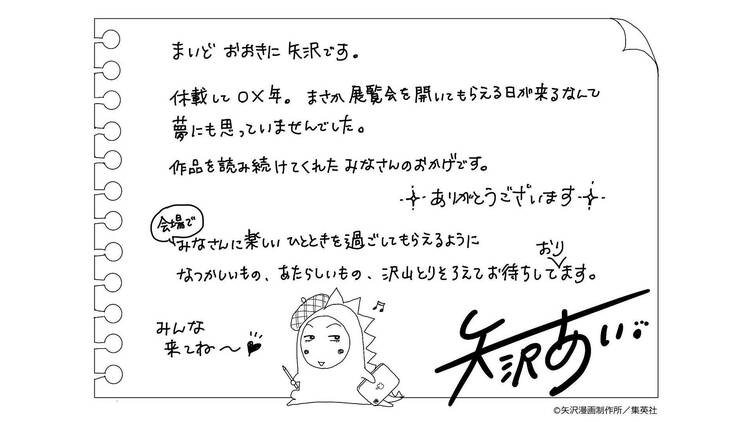 まいど おおきに 矢沢です。
休載して〇×年。まさか展覧会を開いてもらえる日が来るなんて
夢にも思っていませんでした。
作品を読み続けてくれた みなさんのおかげです。
ありがとうございます
会場で
みなさんに楽しいひとときを過ごしてもらえるように
おり
なつかしいもの、あたらしいもの、沢山とりそろえてお待ちしてます。
みんな
来てね〜
矢沢あい
©矢沢漫画制作所／集英社